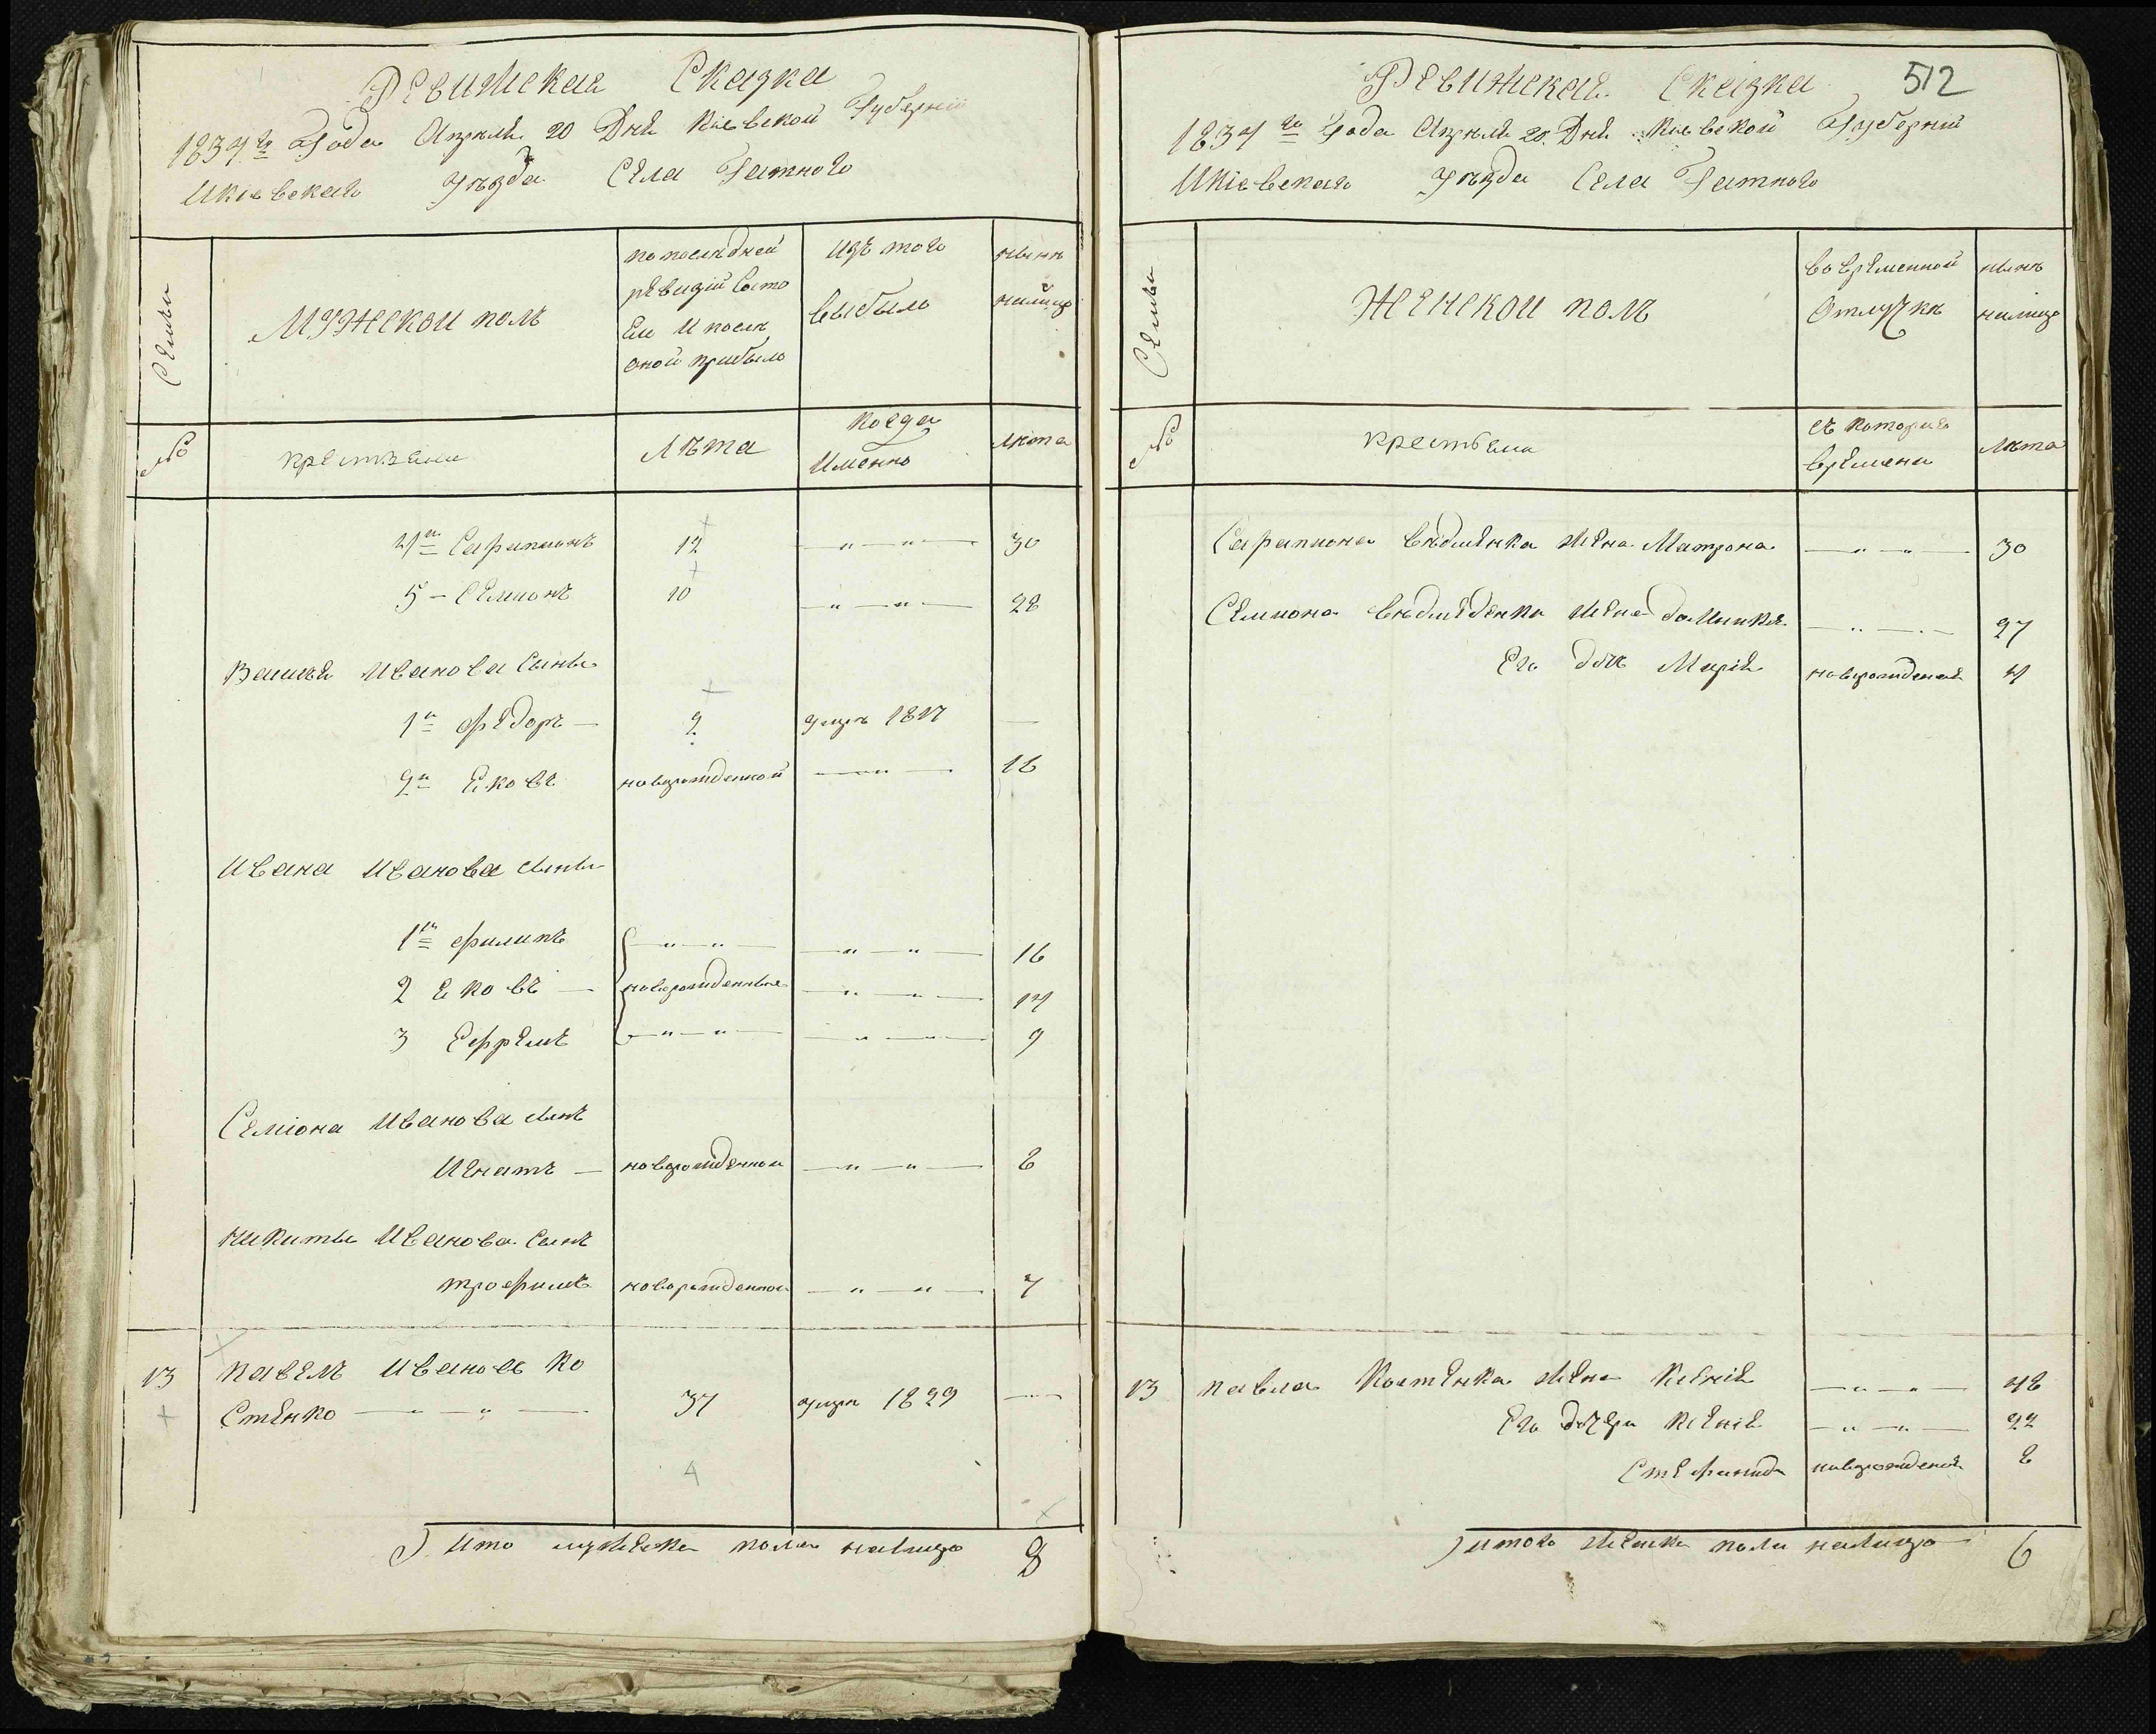 Ревижская Сказка
1834го Года Апреля 20 Дня Киевской Губернии
Икиевскаго Уезда Села Гатного
Семьи
МУЖСКОИ полъ
по последней
ревизии состо
яли и после
оной прибыло
изъ того
выбыло
ныне
налицо
№
крестьяни
Лѣта
когда
Именно
лета
4й Сарапионъ 12 — „ — „ — 30
5 – Семионъ 10 — „ — „ — 28
Василя Иванова Сыны
1й Федоръ — 9 умре 1817 —
2й Яковъ новорожденной — „ — 16
Ивана Иванова сыны
1й Филипъ — „ — „ — — „ — „ — 16
2 Яковъ — новорожденные — „ — „ — 14
3 Ефремъ — „ — „ — — „ — „ — 9
Семiона Иванова сынъ
Игнатъ — новорожденной — „ — „ — 8
Никиты Иванова Сынъ
трофимъ новорожденной — „ — „ — 7
13 павелъ Ивановъ Ко
стенко — „ — „ — 37 умре 1829 —
4
Ито мужеска пола налицо 8
512
Ревижская Сказка
1834го Года Апреля 20 Дня Киевской Губернии
Икiевскаго Уезда Села Гатного
Семьи
ЖЕНСКОИ полъ
во временной
Отлучке
ныне
налицо
№
крестьяни
съ которого
времени
Лета
Сарапиона жена Матрона — „ — „ — 30
Семиона жена доминкя — „ — „ — 27
Его дочь Марiя новорожденая 4
13 павла Костенка жена Ксенiя — „ — „ — 48
Его дочери Ксенiя — „ — „ — 22
Стефанида новорожденая 8
итого женска пола налицо 6